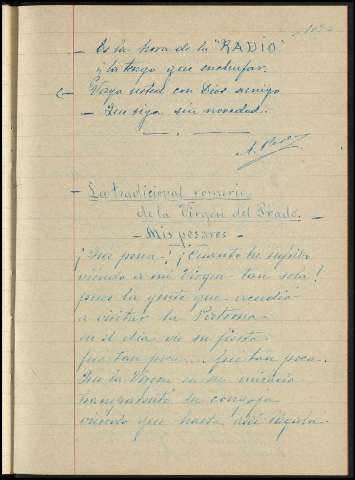 - Es la hora de la "RADIO"
y la tengo que enchufar.
- Vaya usted con Dios amigo
- Que siga sin novedad.
A.
- La tradicional romería
de la Virgen del Prado. -
- Mis pesares -
¡Que pena! ¡Cuanto he sufrido
viendo a mi Virgen tan sola!
pues la gente que acudió
a visitar la Patrona
en el día de su fiesta
fue tan poca.... fue tan poca.
Que la Virgen en su
su congoja
viendo que hasta allí llegaba